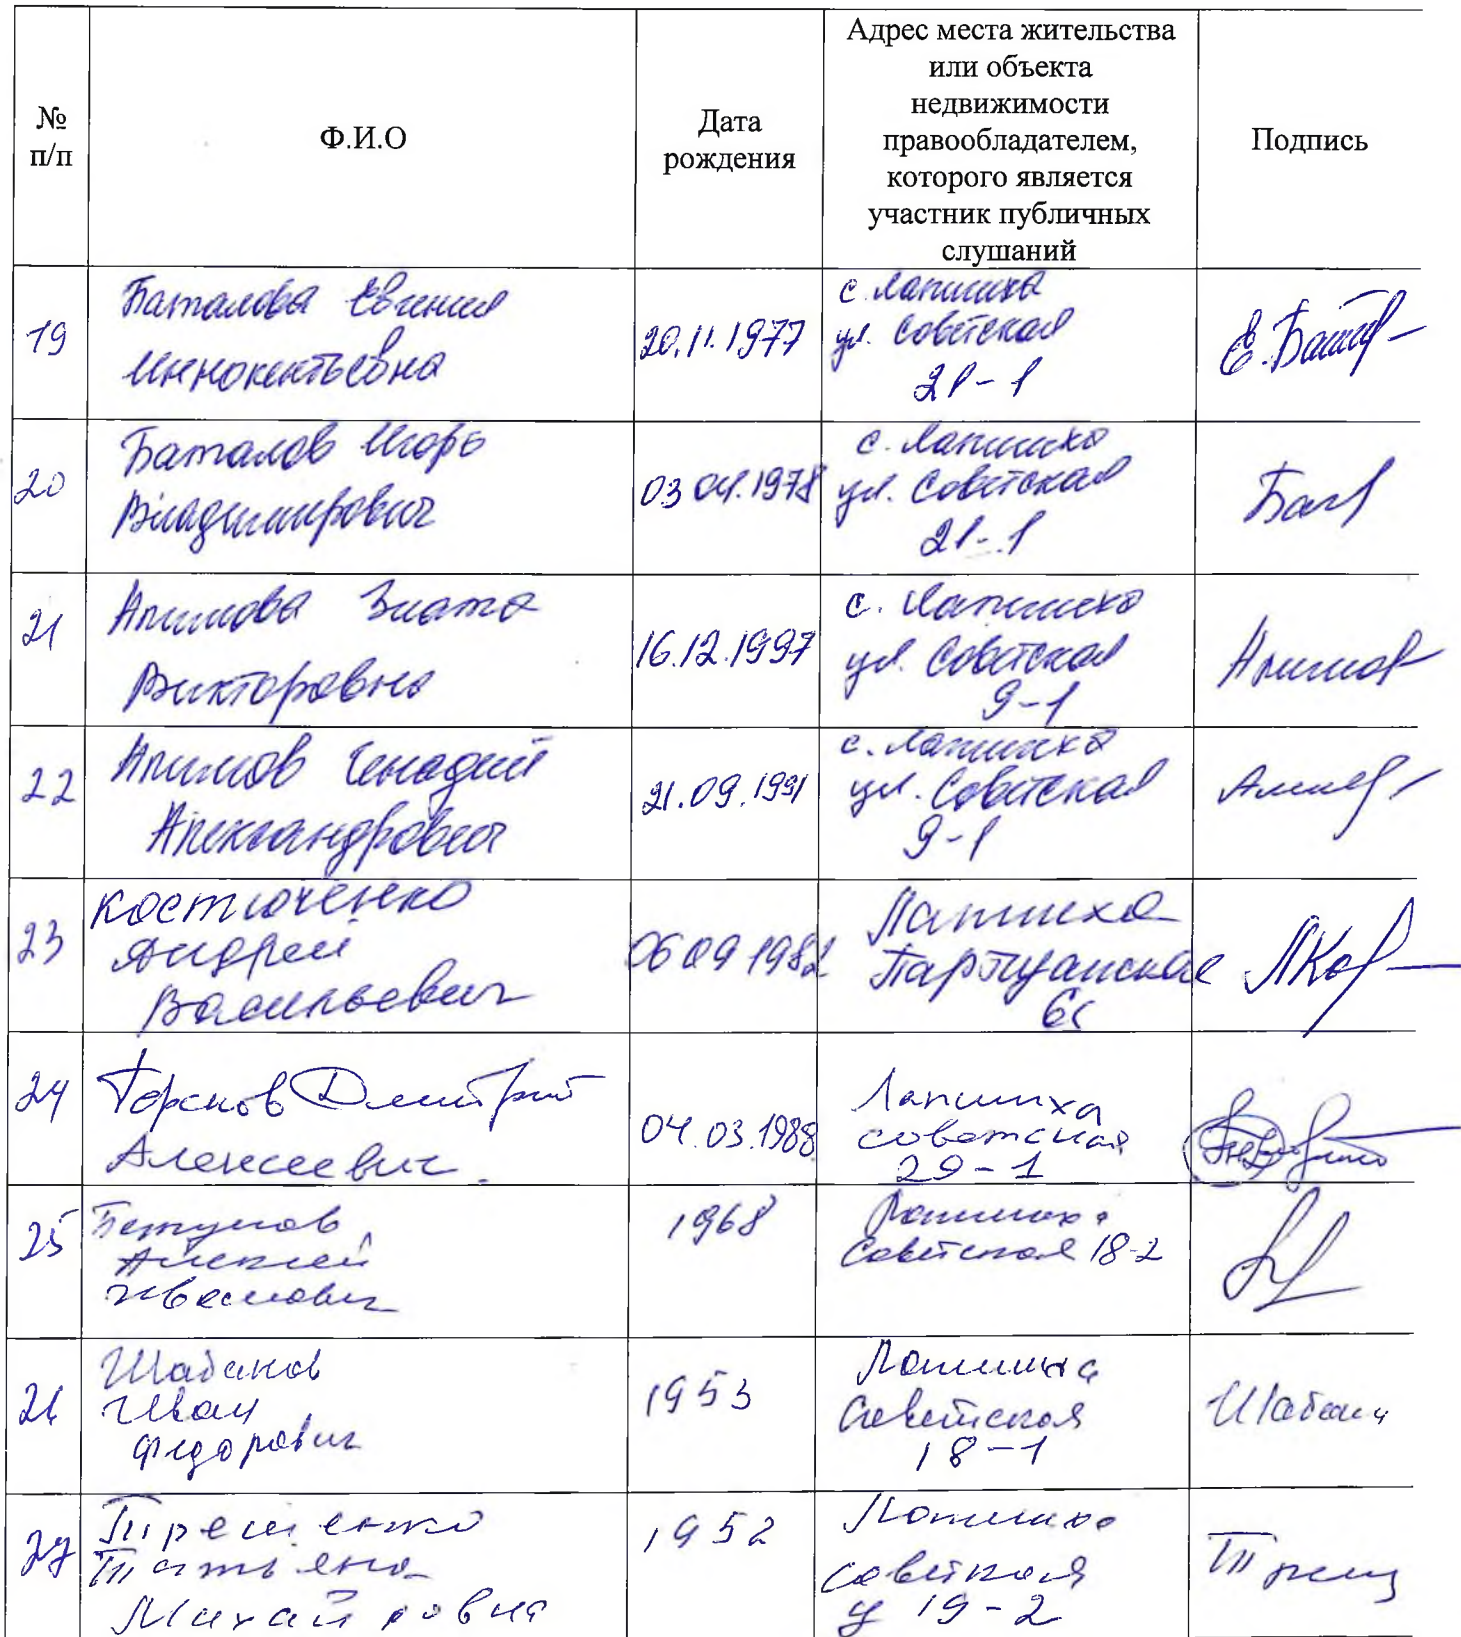 №
п/п
Ф.И.О
Дата
рождения
Адрес места жительства
или объекта
недвижимости
правообладателем,
которого является
участник публичных
слушаний
Подпись
19
Баталова Евгения
Иннокентьевна
20.11.1977
с. Лапшиха
ул. Советская
21-1
Е. Батал
20
Баталов Игорь
Владимирович
03 04.1978
с. Лапшиха
ул. Советская
21-1
21
Апимова Злата
Викторовна
16.12.1997
с. Лапшиха
ул. Советская
9-1
22
Апимов Генадий
Александрович
21.09.1991
с. Лапшиха
ул. Советская
9-1
23
Костюченко
Андрей
Васильевич
06 09 1982
Лапшиха
Партизанская
24
Дмитрий
Алексеевич.
04.03.1988
Лапшиха
советская
29-1
25
Алексей
Иванович
1968
Лапшиха
Советская 18-2
26
Шабанов
Иван
Федорович
1953
Лапшиха
Советская
18-1
27
Трещенко
Татьяна
1952
Лапшиха
19-2